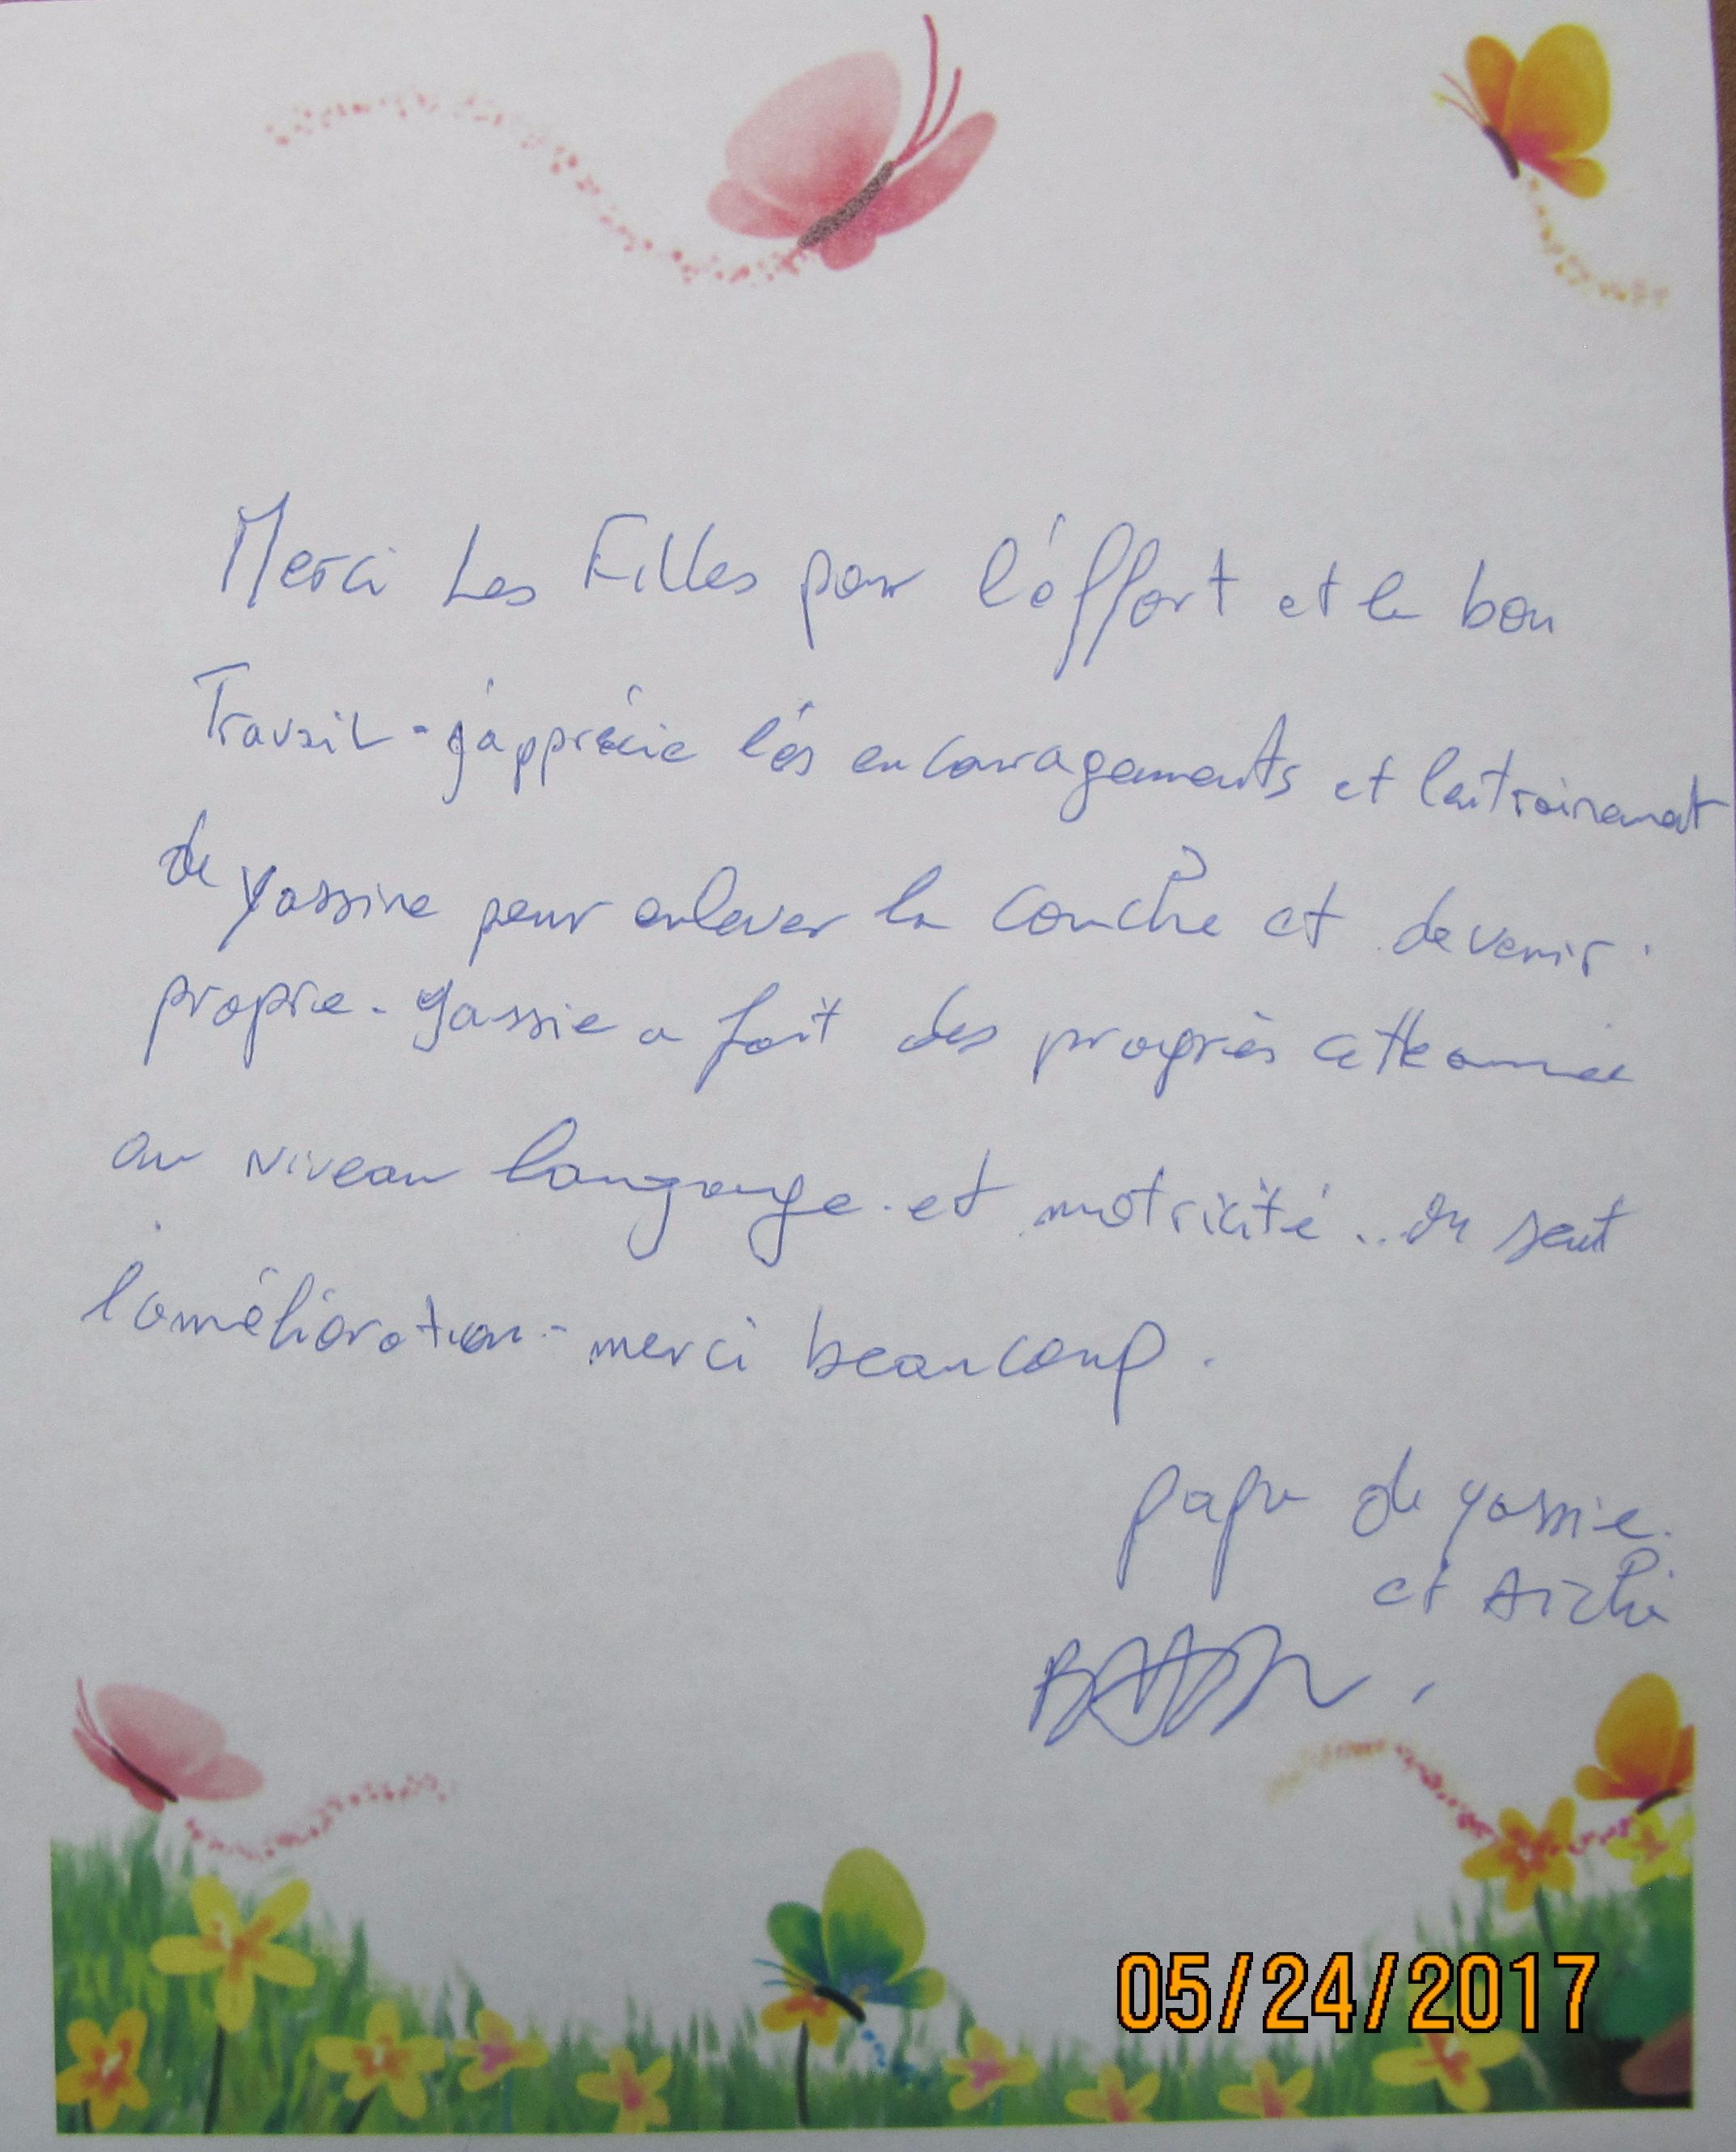 Merci Les Filles pour l'éffort et le bon
Travail - j'apprécie lés encouragements et l'entrainement
de Yassine pour enlever la couche et devenir
propre - yassie a fait des progrès cette année
au niveau langauge et motricité... on sent
l'amélioration - merci beaucoup.
papa de yassie.
et
05/24/2017